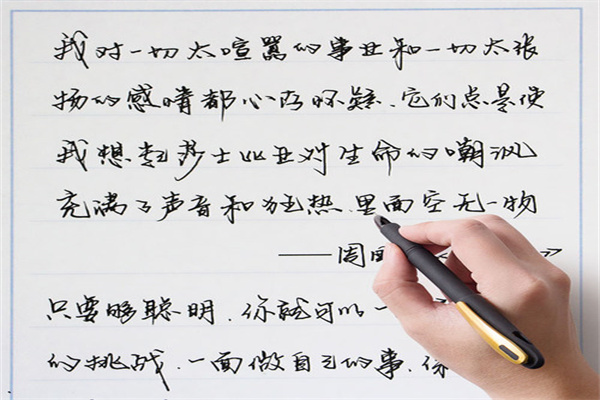 我对一切太喧嚣的事业和一切太张
扬的感情都心存怀疑、它们总是使
我想起莎士比亚对生命的嘲讽
充满了声音和狂热、里面空无一物
——周
只要够聪明、你就可以一
的挑战、一面做自己的事、你